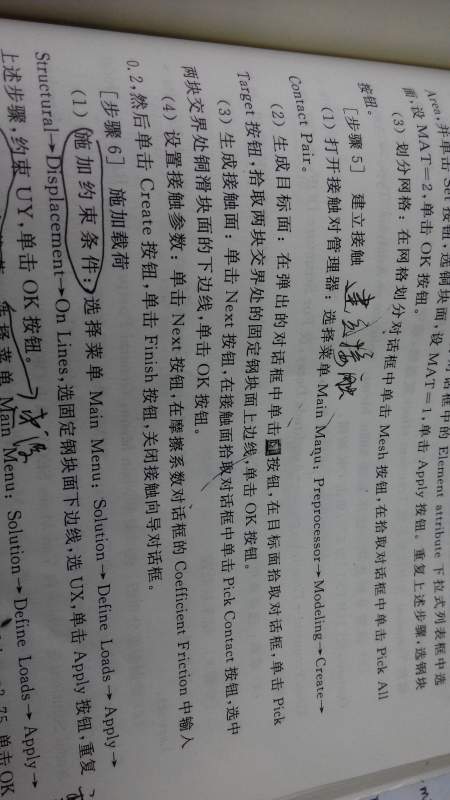 对话框中的 Element attribute 下拉式列表框中选
Area, 并单击 Set 按钮, 选铜块面, 设 MAT=1, 单击 Apply 按钮。重复上述步骤, 选钢块
面, 设 MAT=2, 单击 OK 按钮。
(3) 划分网格: 在网格划分对话框中单击 Mesh 按钮, 在拾取对话框中单击 Pick All
按钮。
[步骤 5] 建立接触 建立接触
(1) 打开接触对管理器: 选择菜单 Main Manu: Preprocessor→Modeling→Create→
Contact Pair。
(2) 生成目标面: 在弹出的对话框中单击按钮, 在目标面拾取对话框, 单击 Pick
Target 按钮, 拾取两块交界处的固定钢块面上边线, 单击 OK 按钮。
(3) 生成接触面: 单击 Next 按钮, 在接触面拾取对话框中单击 Pick Contact 按钮, 选中
两块交界处铜滑块面的下边线, 单击 OK 按钮。
(4) 设置接触参数: 单击 Next 按钮, 在摩擦系数对话框的 Coefficient Friction 中输入
0.2, 然后单击 Create 按钮, 单击 Finish 按钮, 关闭接触向导对话框。
[步骤 6] 施加载荷
(1) 施加约束条件: 选择菜单 Main Menu: Solution→Define Loads→Apply→
Structural→Displacement→On Lines, 选固定钢块面下边线, 选 UX, 单击 Apply 按钮, 重复
上述步骤, 约束 UY, 单击 OK 按钮。
选择菜单 Main Menu: Solution→Define Loads→Apply→
单击 OK